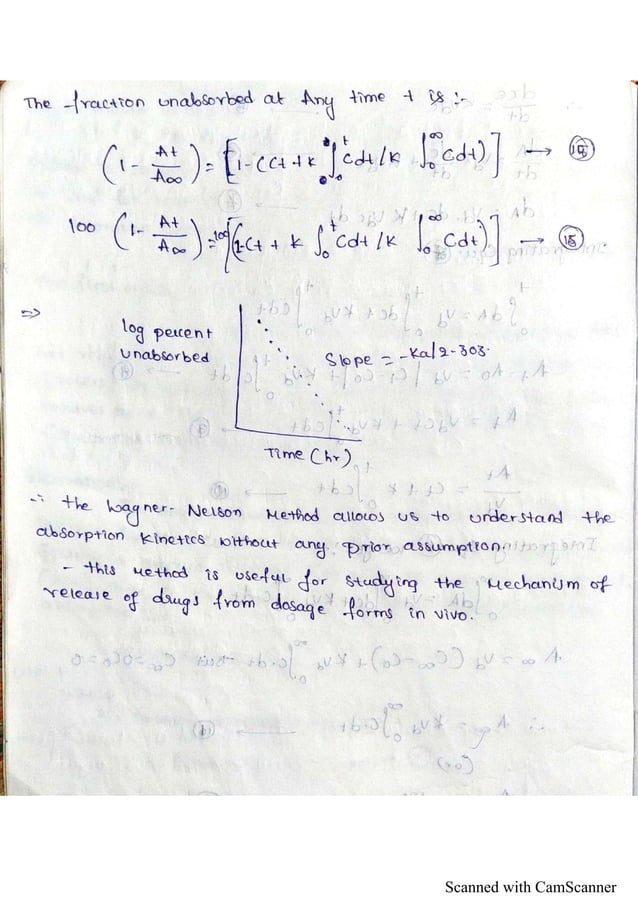 The fraction unabsorbed at Any time t is :-
(1 - At/A∞) = [1 - (Ct + K ∫₀ᵗ Cdt / K ∫₀^∞ Cdt)] → (15)
100 (1 - At/A∞) = 100 [(1 - Ct + K ∫₀ᵗ Cdt / K ∫₀^∞ Cdt)] → (16)
⇒
log percent
unabsorbed
Slope = -Ka/2.303.
Time (hr)
∴ the Wagner-Nelson Method allows us to understand the
absorption kinetics without any prior assumption.
- this method is useful for studying the Mechanism of
release of drugs from dosage forms in vivo.
Scanned with CamScanner